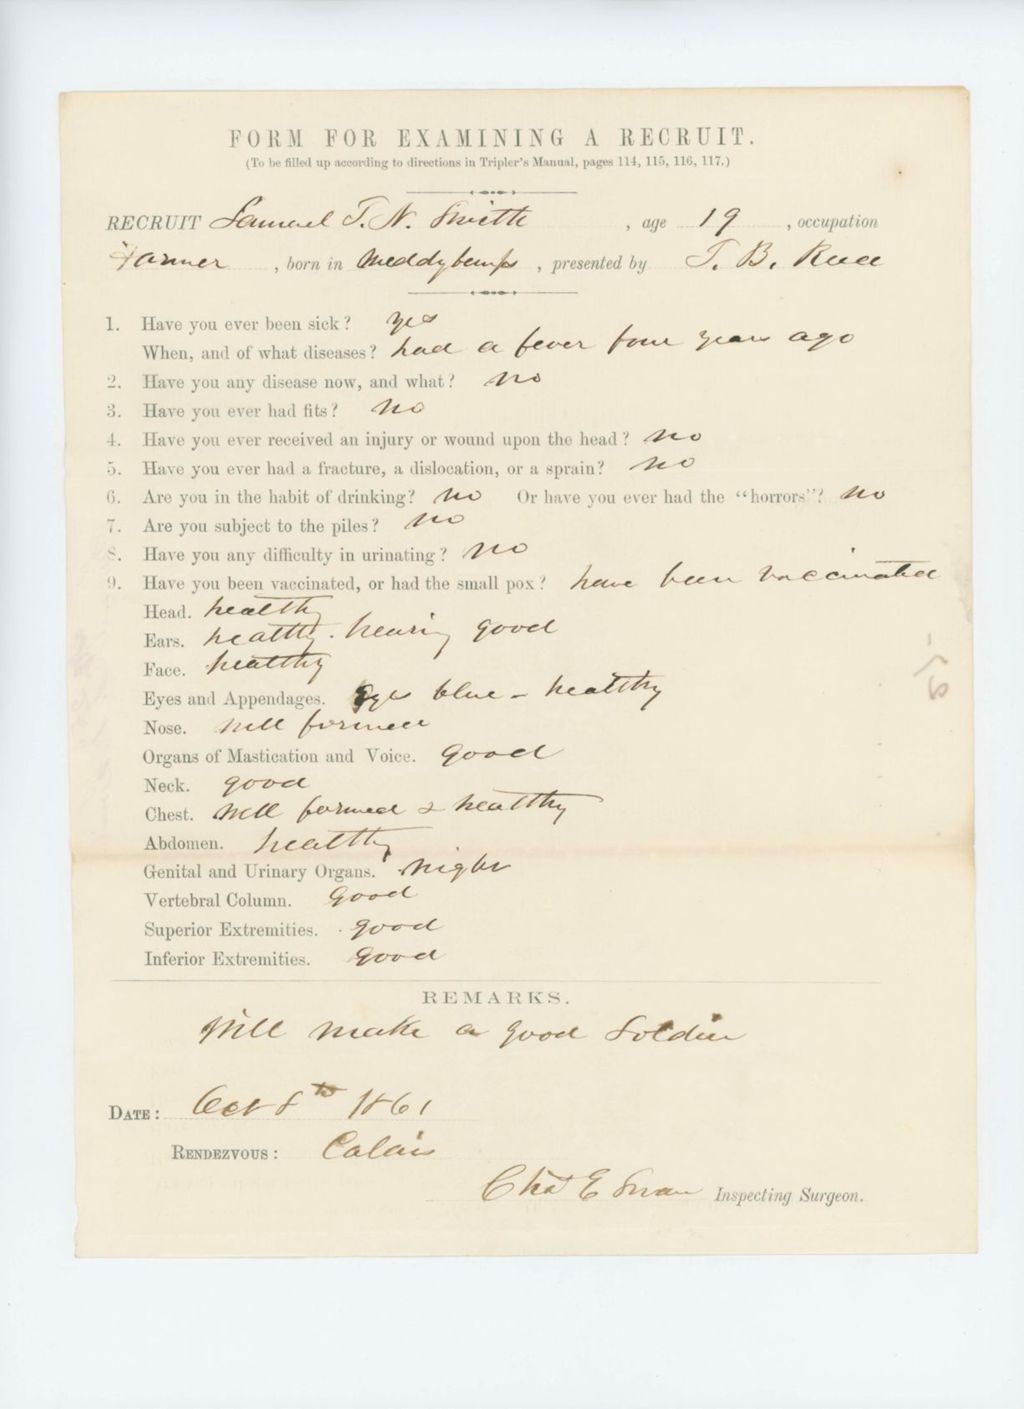 FORM FOR EXAMINING A RECRUIT.
(To be filled up according to directions in Tripler's Manual, pages 114, 115, 116, 117.)
RECRUIT Samuel T. N. Smith, age 19, occupation
Farmer, born in Meddybemps, presented by T. B.
1. Have you ever been sick? yes
When, and of what diseases? had a fever four years ago
2. Have you any disease now, and what? no
3. Have you ever had fits? no
4. Have you ever received an injury or wound upon the head? no
5. Have you ever had a fracture, a dislocation, or a sprain? no
6. Are you in the habit of drinking? no Or have you ever had the "horrors"? no
7. Are you subject to the piles? no
8. Have you any difficulty in urinating? no
9. Have you been vaccinated, or had the small pox? have been vaccinated
Head. healthy
Ears. healthy. hearing good
Face. healthy
Eyes and Appendages. Eyes blue - healthy
Nose. well formed
Organs of Mastication and Voice. good
Neck. good
Chest. well formed & healthy
Abdomen. healthy
Genital and Urinary Organs.
Vertebral Column. good
Superior Extremities. good
Inferior Extremities. good
REMARKS.
Will make a good soldier
DATE: Oct 8th 1861
RENDEZVOUS: Calais
Chas E Swan Inspecting Surgeon.